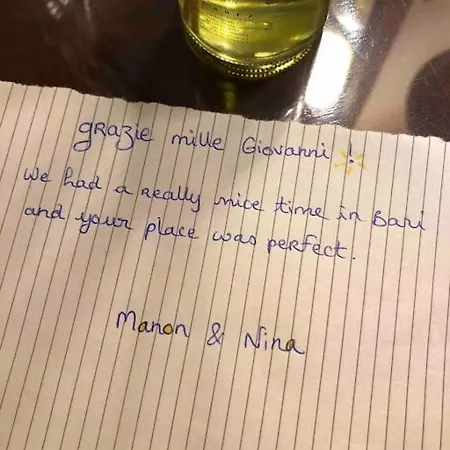 grazie mille Giovanni !
We had a really nice time in Bari
and your place was perfect.
Manon & Nina